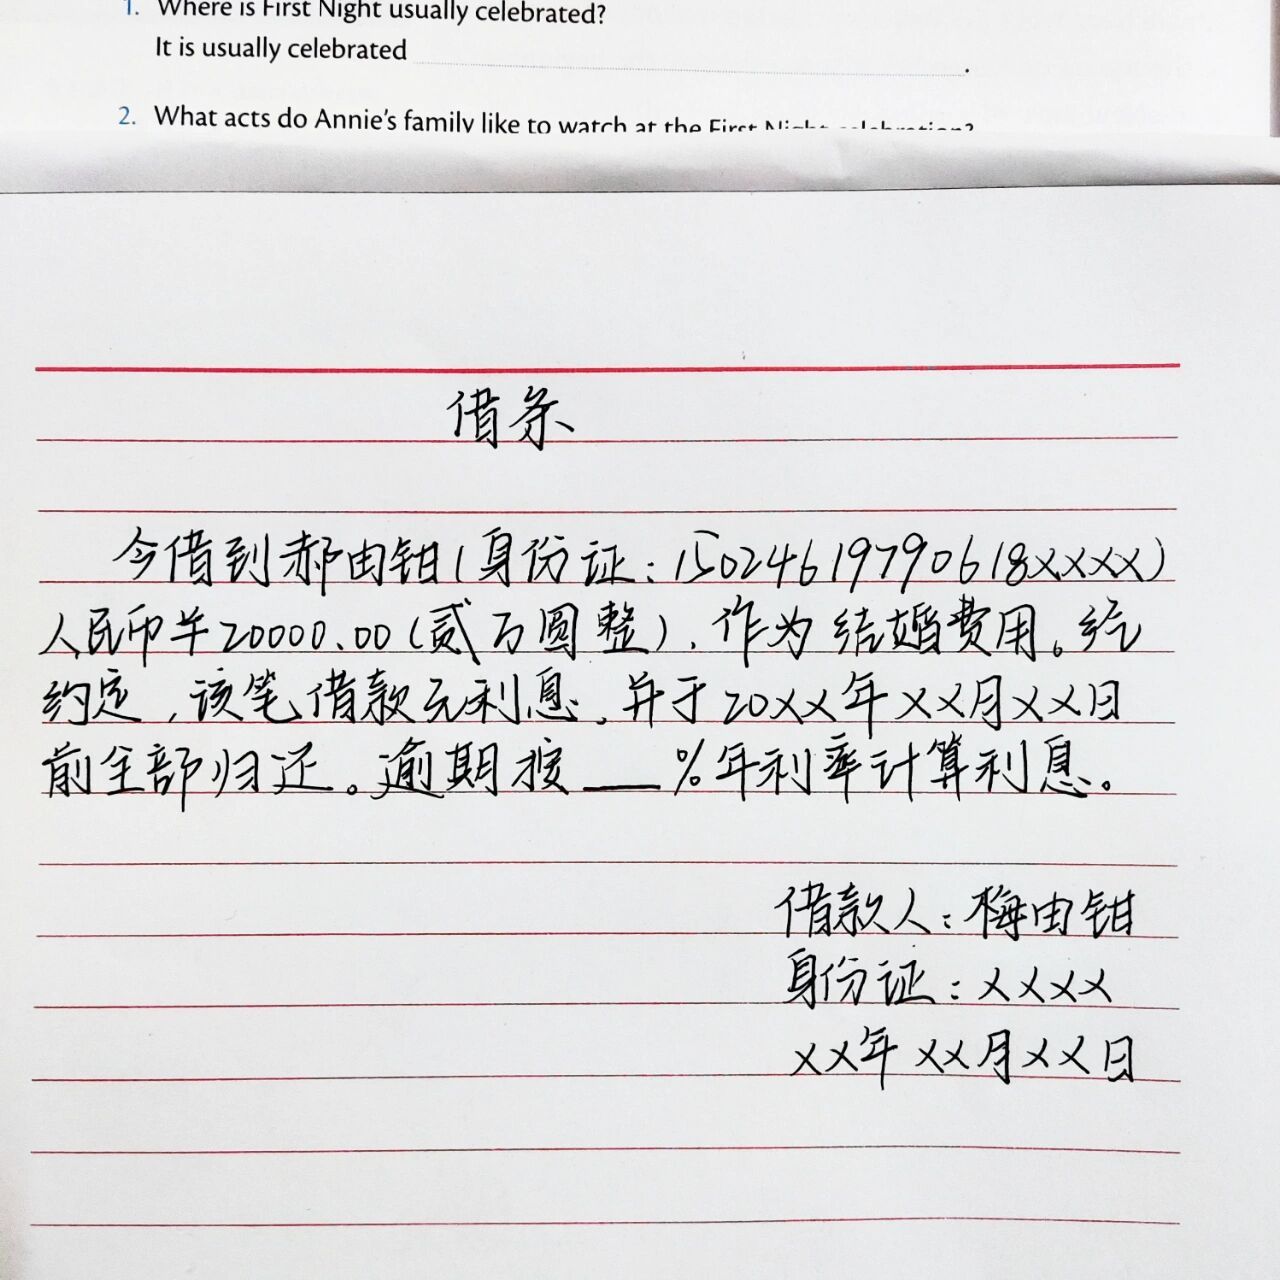 1. Where is First Night usually celebrated?
It is usually celebrated .
2. What acts do Annie's family like to watch at the First Night celebration?
借条
今借到郝由钳(身份证:15024619790618xxxx)
人民币¥20000.00(贰万圆整),作为结婚费用。经
约定,该笔借款无利息,并于20xx年xx月xx日
前全部归还。逾期按__%年利率计算利息。
借款人:梅由钳
身份证:xxxx
xx年xx月xx日